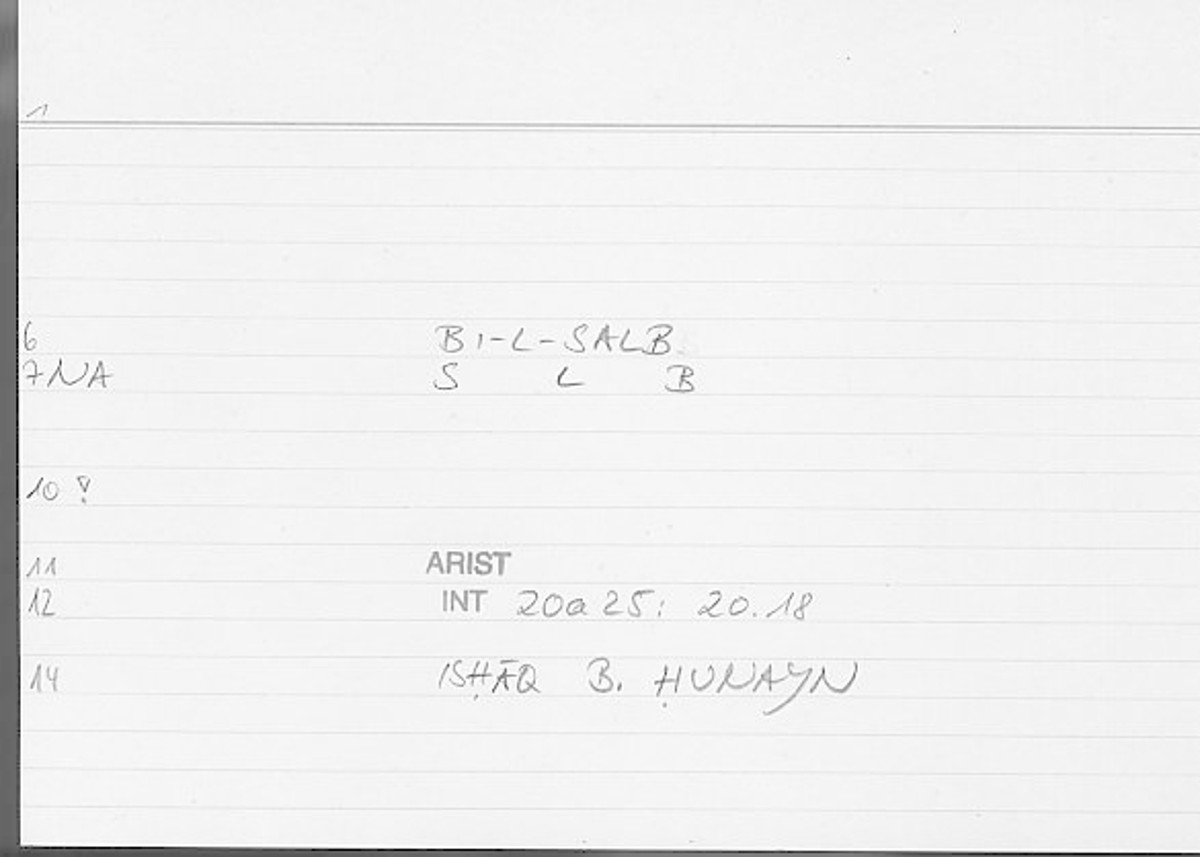 1
6 BI-L-SALB
7NA S L B
10 ?
11 ARIST
12 INT 20a25: 20.18
14 ISḤĀQ B. ḤUNAYN